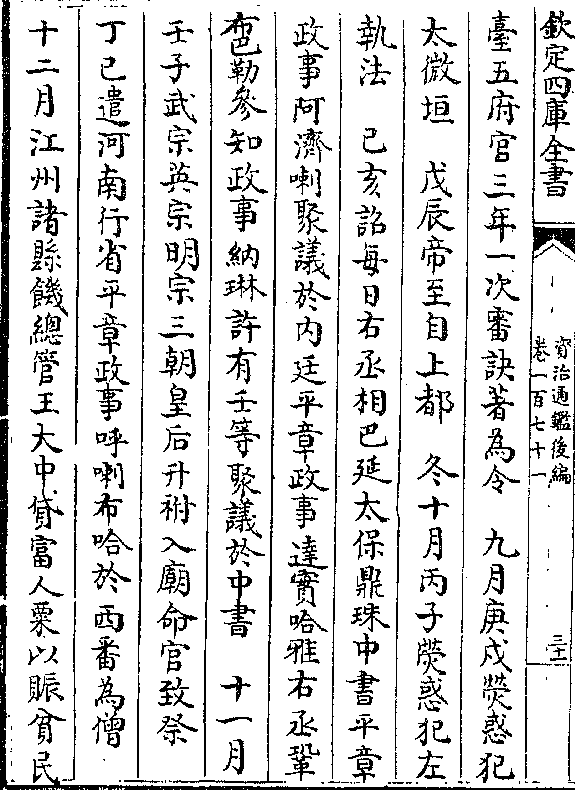 欽定四庫全書
資治通鑑後編
卷一百七十一
三十一
臺五府官三年一次審訣著為令　九月庚戌熒惑犯
太微垣　戊辰帝至自上都　冬十月丙子熒惑犯左
執法　已亥詔每日右丞相巴延太保鼎珠中書平章
政事阿濟喇聚議於内廷平章政事達實哈雅右丞鞏
布巴勒參知政事納琳許有壬等聚議於中書　十一月
壬子武宗英宗明宗三朝皇后升祔入廟命官致祭
丁已遣河南行省平章政事呼喇布哈於西番為僧
十二月江州諸縣饑總管王大中貸富人粟以賑貧民